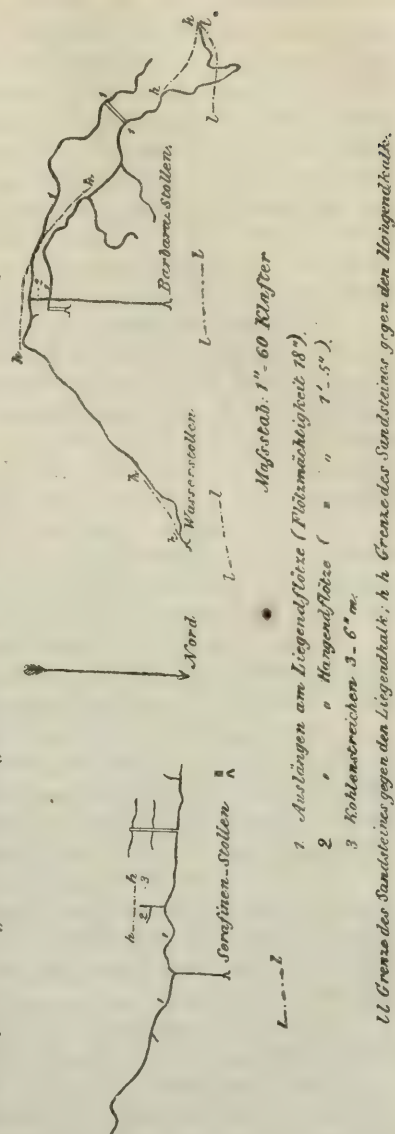 h
h
h
l
Barbara-Stollen.
h
h
l
l
2
h
h
Wasserstollen
l
l
Nord
h
h
2
3
Serafinen-Stollen
L
l
Maßstab: 1" = 60 Klafter
1 Auslängen am Liegendflötze (Flötzmächtigkeit 18").
2 " " Hangendflötze ( " " 1'-5").
3 Kohlenstreichen 3-6" m.
l l Grenze des Sandsteines gegen den Liegendkalk; h h Grenze des Sandsteines gegen den Hangendkalk.